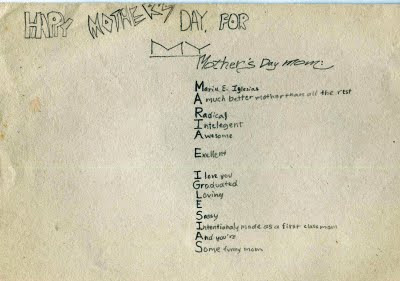 HAPPY MOTHER'S DAY, FOR
MY
Mother's Day Mom:
Maria E. Iglesias
A much better mother than all the rest
Radical
Intelegent
Awesome
Exellent
I love you
Graduated
Loving
E
Sassy
Intentionaly made as a first class mom
And you're
Some funny mom